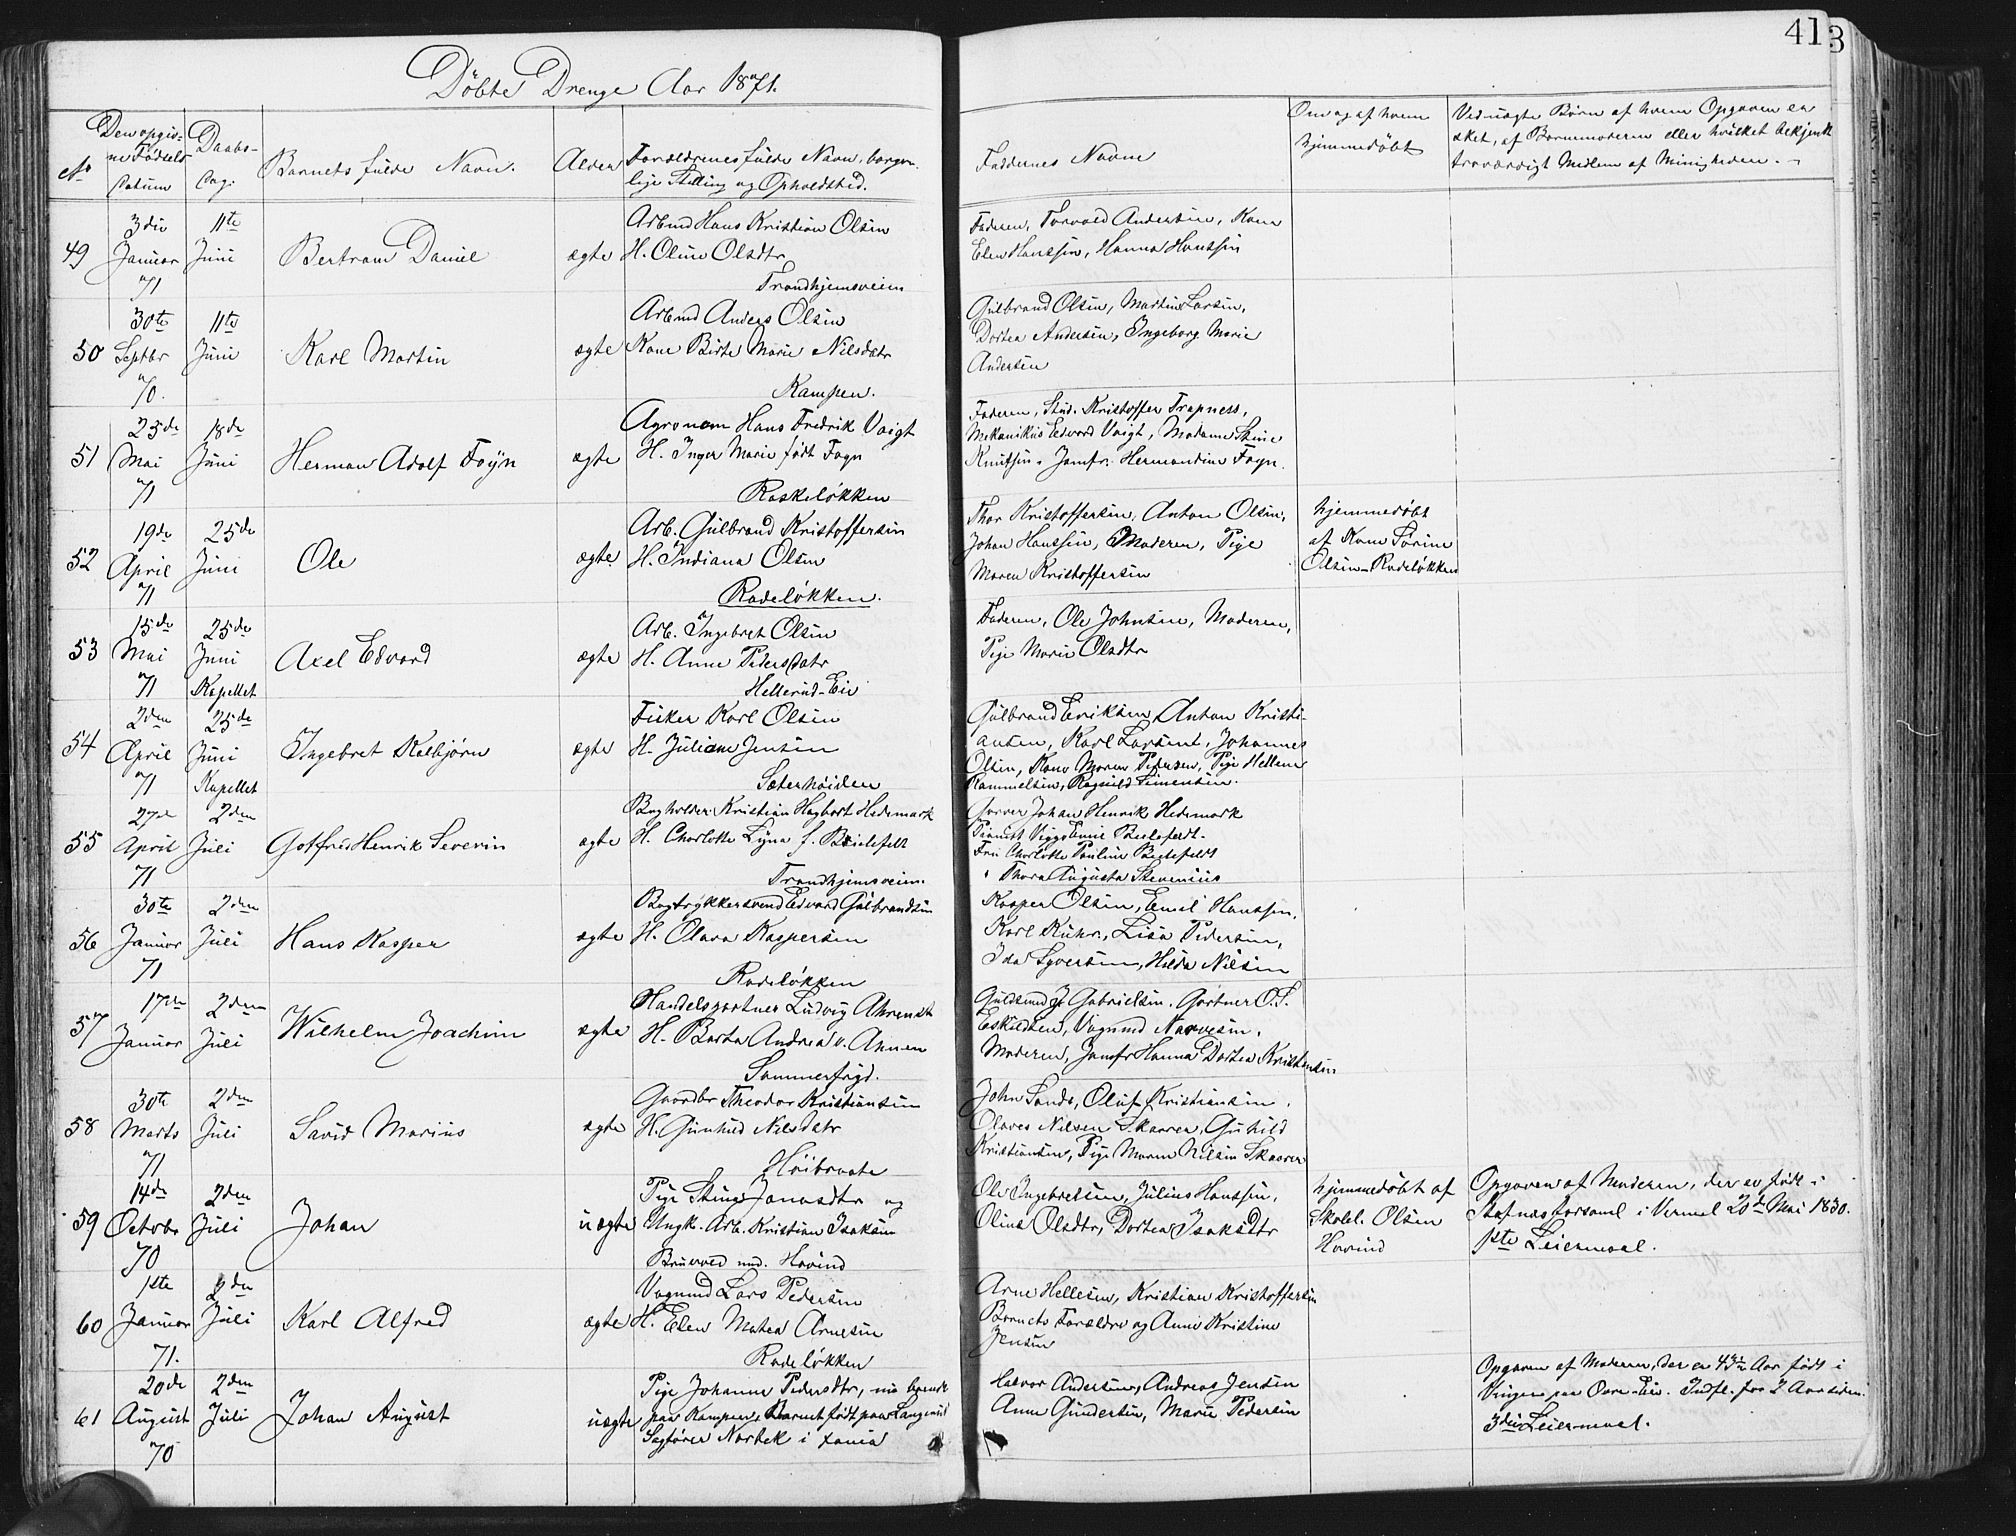 41
3
Döbte Drenge Aar 1871.
No
Den opgiv=
ne Födsels
Datum
Daabs-
Dag.
Barnets fulde Navn.
Forældrenes fulde Navn, borger-
lige Stilling og Opholdsted.
Faddernes Navne
Om og af hvem
hjemmedöbt
Ved uægte Börn af hvem Opgaven er
sket, af Barnmoderen eller hvilket bekjendt
troværdigt Medlem af Menigheden.
49
3die
Januar
71
11te
Juni
Bertram Daniel
ægte
Arbmd Hans Kristian Olsen
H. Oline Olsdtr
Trondhjemsveien
Faderen, Torvald Andersen, Kone
Elen Hanssen, Hanna Hanssen
50
30te
Septbr
70.
11te
Juni
Karl Martin
ægte
Arbmd Anders Olsen
Kone Birte Marie Nilsdatr
Kampen.
Gulbrand Olsen, Martin Larsen,
Dortea Andersen, Ingeborg Marie
Andersen
51
23de
Mai
71
18de
Juni
Herman Adolf Foyn
ægte
Agronom Hans Fredrik Voigt
H. Inger Marie født Foyn
Raskeløkken
Faderen, Stud. Kristoffer Trapness,
Mekanikus Edvard Voigt, Madame Stine
Knutsen, Jomfr. Hermandine Foyn.
52
19de
April
71
25de
Juni
Ole
ægte
Arb. Gulbrand Kristoffersen
H. Indiana Olsen
Rodeløkken.
Thor Kristoffersen, Anton Olsen,
Johan Hanssen, Moderen, Pige
Maren Kristoffersen
hjemmedöbt
af Kone Sørine
Olsen-Rodeløkken
53
15de
Mai
71
25de
Juni
Kapellet
Axel Edvard
ægte
Arb. Ingebret Olsen
H. Anne Pedersdatr
Hellerud-Eie
Faderen, Ole Johnsen, Moderen,
Pige Marie Olsdtr
54
2den
April
71
25de
Juni
Kapellet
Ingebret Kolbjørn
ægte
Fisker Karl Olsen
H. Juliane Jensen
Sæterhøiden
Gulbrand Eriksen, Anton Kristi-
ansen, Karl Larsen, Johannes
Olsen, Kone Maren Pedersen, Pige Hellene
Rammelsen, Ragnild Simensen.
55
27de
April
71
2den
Juli
Gotfred Henrik Severin
ægte
Bogholder Kristian Hagbart Hedemark
H. Charlotte Lyna f. Bielefelt
Trondhjemsveien.
Johan Henrik Hedemark
Pianist Viggo Emil Bielefeldt.
Fru Charlotte Pauline Bielefeldt
Thora Augusta Stevenius
56
30te
Januar
71
2den
Juli
Hans Kasper
ægte
Bogtrykkersvend Edvard Gulbrandsen
H. Olava Kaspersen
Rodeløkken
Kasper Olsen, Emil Hanssen,
Karl Kuhr., Lisa Pedersen,
Ida Syversen, Hilda Nilsen
57
17de
Januar
71
2den
Juli
Wilhelm Joachim
ægte
Handelsgartner Ludvig Ahrendt
H. Berta Andrea v. Ahnen
Sommerfryd.
Guldsmed J Gabrielsen. Gartner O. S.
Eskildsen, Vognmd Narvesen,
Moderen, Jomfr Hanna Dortea Kristensen
58
30te
Marts
71
2den
Juli
David Marius
ægte
Gaardbr Theodor Kristiansen
H. Gunhild Nilsdatr
Høibraate
John Sande, Oluf Kristiansen,
Olaves Nilsen Skaarer, Guhild
Kristiansen, Pige Maren Nilsen Skaarer
59
14de
Octobr
70
2den
Juli
Johan
uægte
Pige Stine Jonasdtr og
Ungk. Arb. Kristian Isaksen
Bruvold nd. Hovind
Ole Ingebretsen, Julius Hanssen,
Oline Olsdtr, Dortea Isaksdtr
hjemmedöbt af
Skolel. Olsen
Hovind
Opgaven af Moderen, der er född i
Stafnæs forsaml i Vermel 20de Mai 1830.
1ste Leiermaal.
60
1ste
Januar
71.
2den
Juli
Karl Alfred
ægte
Vognmd Lars Pedersen
H. Elen Matea Arnesen
Rodeløkken
Arne Hellesen, Kristian Kristoffersen
Barnets Forældre og Anne Kristine
Jensen
61
20de
August
70
2den
Juli
Johan August
uægte
Pige Johanne Pedersdtr, nu boende
paa Kampen, Barnet født paa Langerud
Sagfører Norbek i Xania
Halvor Andersen, Andreas Jensen
Anne Gundersen, Marie Pedersen
Opgaven af Moderen, der er 43½ Aar född i
Vinger paa Overn-Eie. Indfl. for 2 Aar siden.
3die Leiermaal.